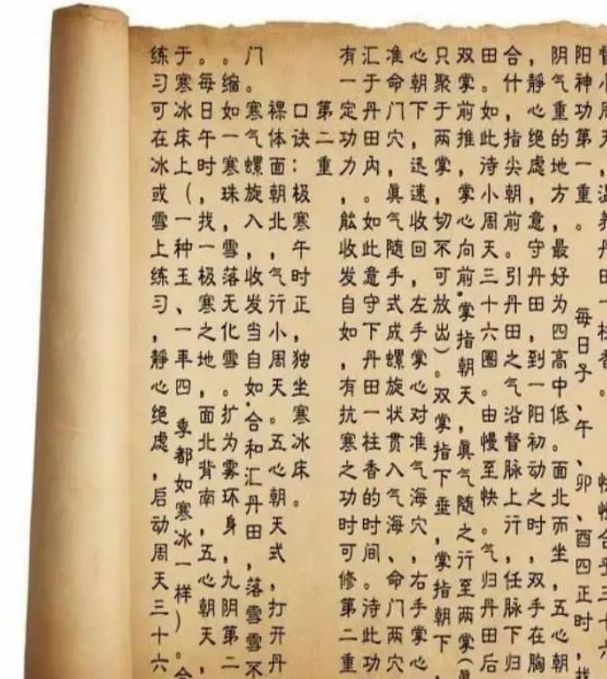 小周天,温养丹田一柱香。快慢合乎三十六
阳神功第一重。 每日子、午、卯、酉四正时,找
阴气重的地方,最好为四高中低。面北而坐,五心朝
,静心绝虑,意守丹田,到一阳初动之时,双手在胸
合什,指尖朝前。引丹田之气沿督脉上行,任脉下归
田。如此待小周天三十六圈。由慢至快。气归丹田后
双掌前推,掌心向前,掌指朝天,真气随之行至两掌(真
只聚于两掌,切不可放出)。双掌指下垂,掌指朝下
心朝下,迅速收回,左手掌心对准气海穴,右手掌心
准命门穴,真气随手式成螺旋状贯入气海、命门两穴
汇于丹田内。如此意守下丹田一柱香的时间。待此功
有一定功力,能收发自如,有抗寒之功时可修第二重
第二重
口诀:极寒午时正,独坐寒冰床。
裸体面朝北,气行小周天。五心朝天式,打开丹
门。寒气螺旋入,收发当自如.合和汇丹田,落雪雪不
。缩如一寒珠,雪落无化雪。扩为雾环身,九阴第二
。每日午时,找一极寒之地,面北背南,五心朝天,
于寒冰床上(一种玉、一年四季都如寒冰一样)。合
练习可在冰或雪上练习,静心绝虑,启动周天三十六